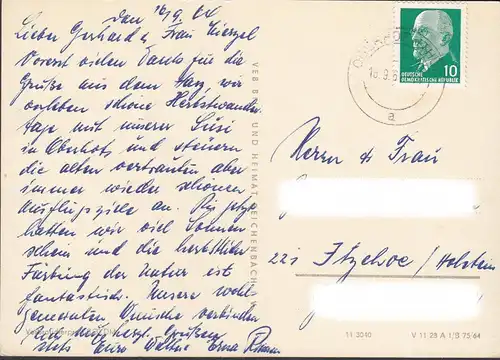 den 16/9. 64
Lieber Gerhard u. Frau
Vorerst vielen Dank für die
Grüße aus dem Harz, wir
verleben schöne Herbstwander-
tage mit unserer Susi
in Oberhof und steuern
die alten vertrauten aber
immer wieder schönen
Ausflugsziele an. Bis jetzt
hatten wir viel Sonnen-
schein und die herbstliche
Färbung der Natur ist
fantastisch. Unsere
Wünsche verbinden
herzl. Grüßen
stets Eure Erna
VEB BILD UND HEIMAT REICHENBACH
16.9.6
a
10
DEUTSCHE
DEMOKRATISCHE REPUBLIK
Herrn & Frau
221 Itzehoe / Holstein
11 3040
V 11 28 A 1/B 75/64